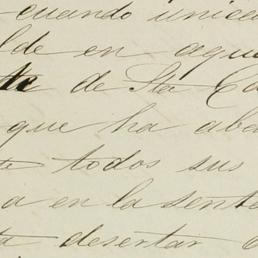 cuando unica
lde en aque
te de Sta Ca
que ha aba
te todos sus
a en la sente
ta desertar